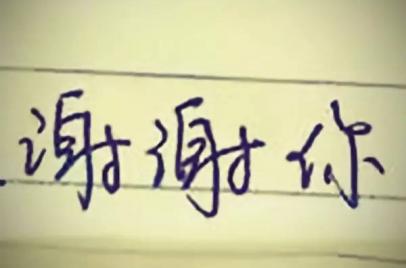 谢谢你